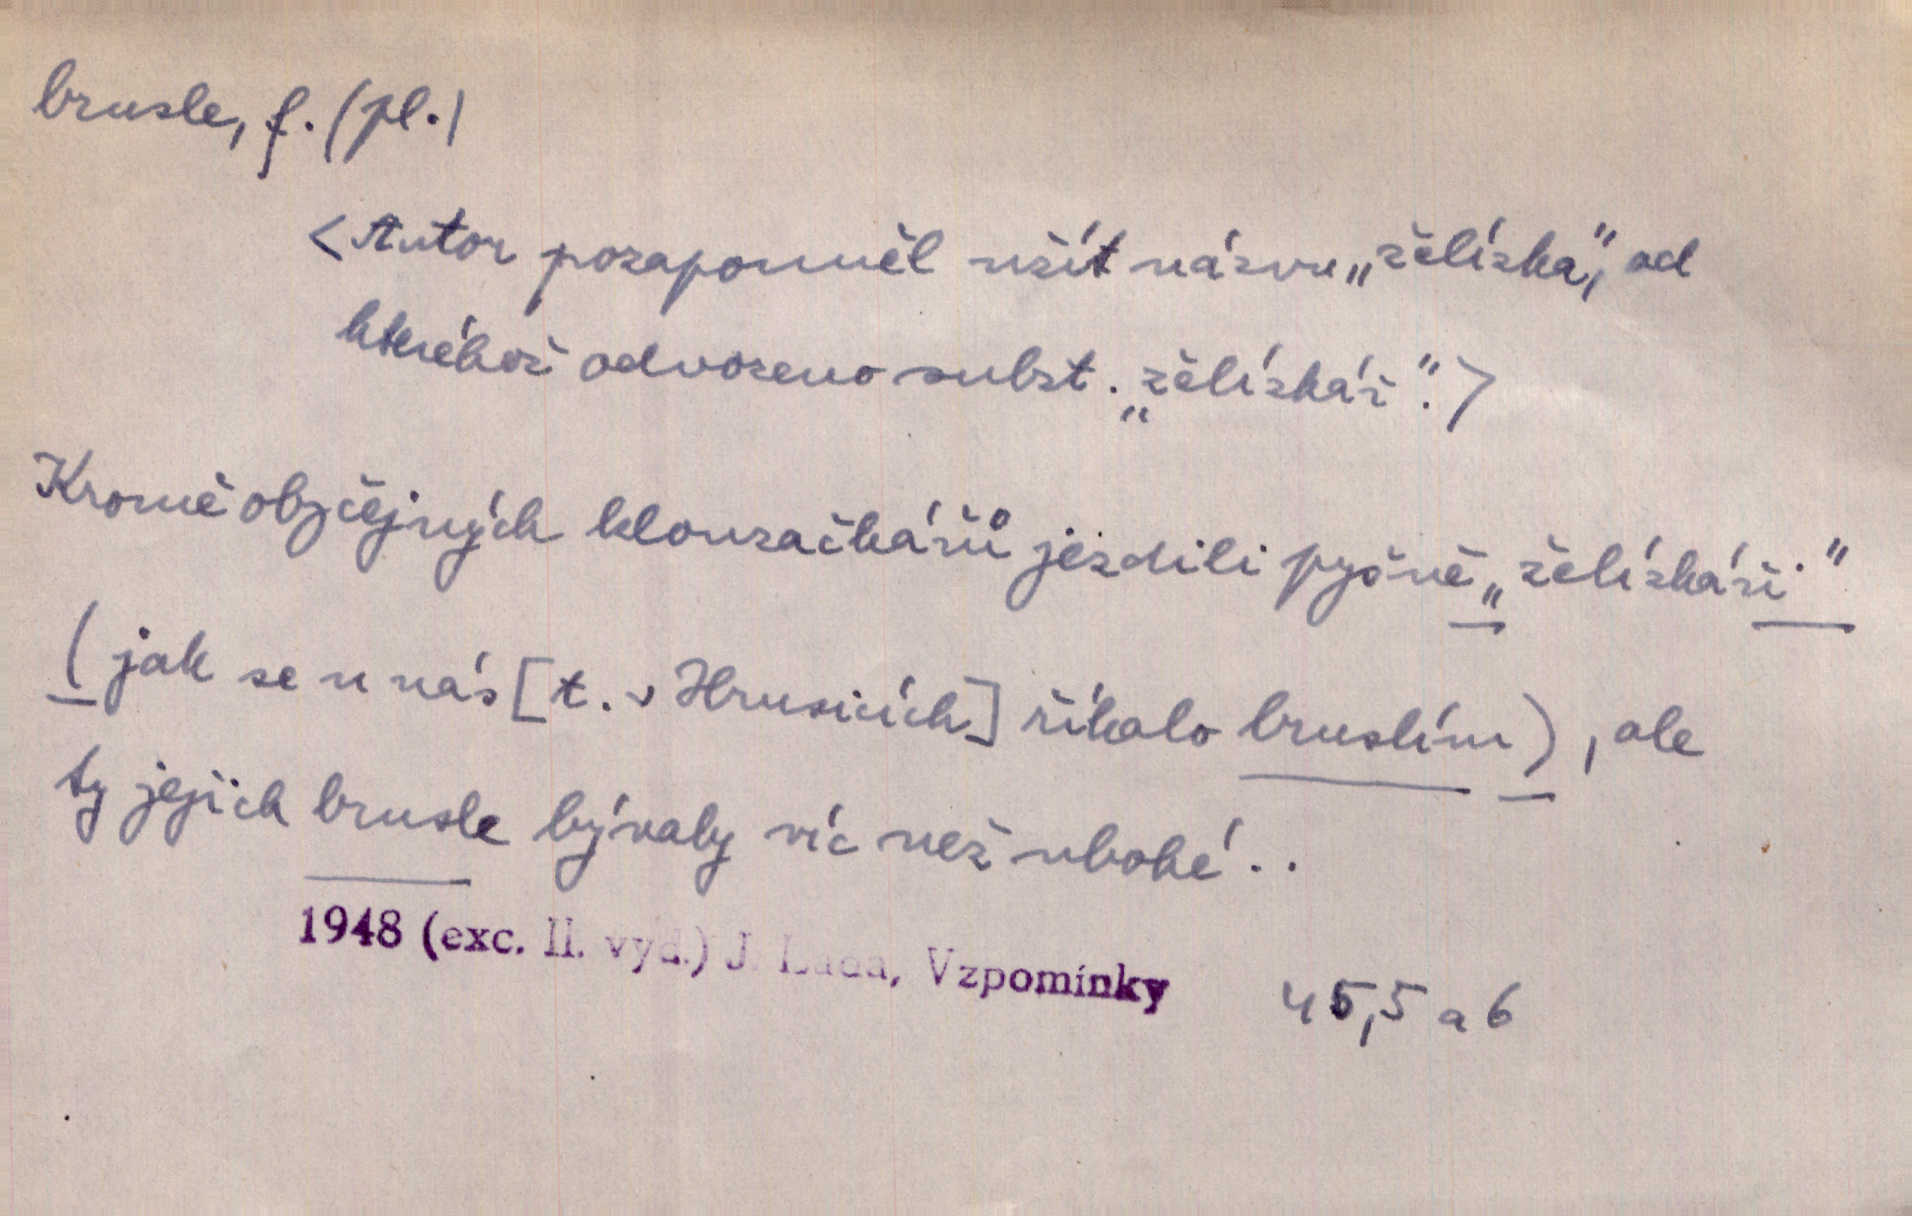 brusle, f. (pl.)
<Autor pozapomněl užít názvu „želízka", od
kteréhož odvozeno subst. „želízkář".>
Kromě obyčejných klouzačkářů jezdili pyšně „želízkáři"
(jak se u nás [t. v Hrusicích] říkalo bruslím), ale
ty jejich brusle bývaly víc než ubohé..
1948 (exc. II. vyd.) J. Lada, Vzpomínky 45,5 a 6